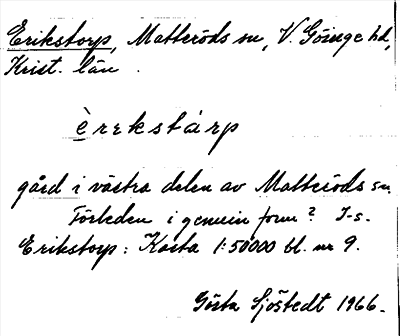 Erikstorp, Matteröds sn, V. Göinge hd,
Krist. län.
èrɛkstȧrp
gård i västra delen av Matteröds sn.
Förleden i genuin form? I-s.
Erikstorp: Karta 1:50000 bl. nr 9.
Gösta Sjöstedt 1966.